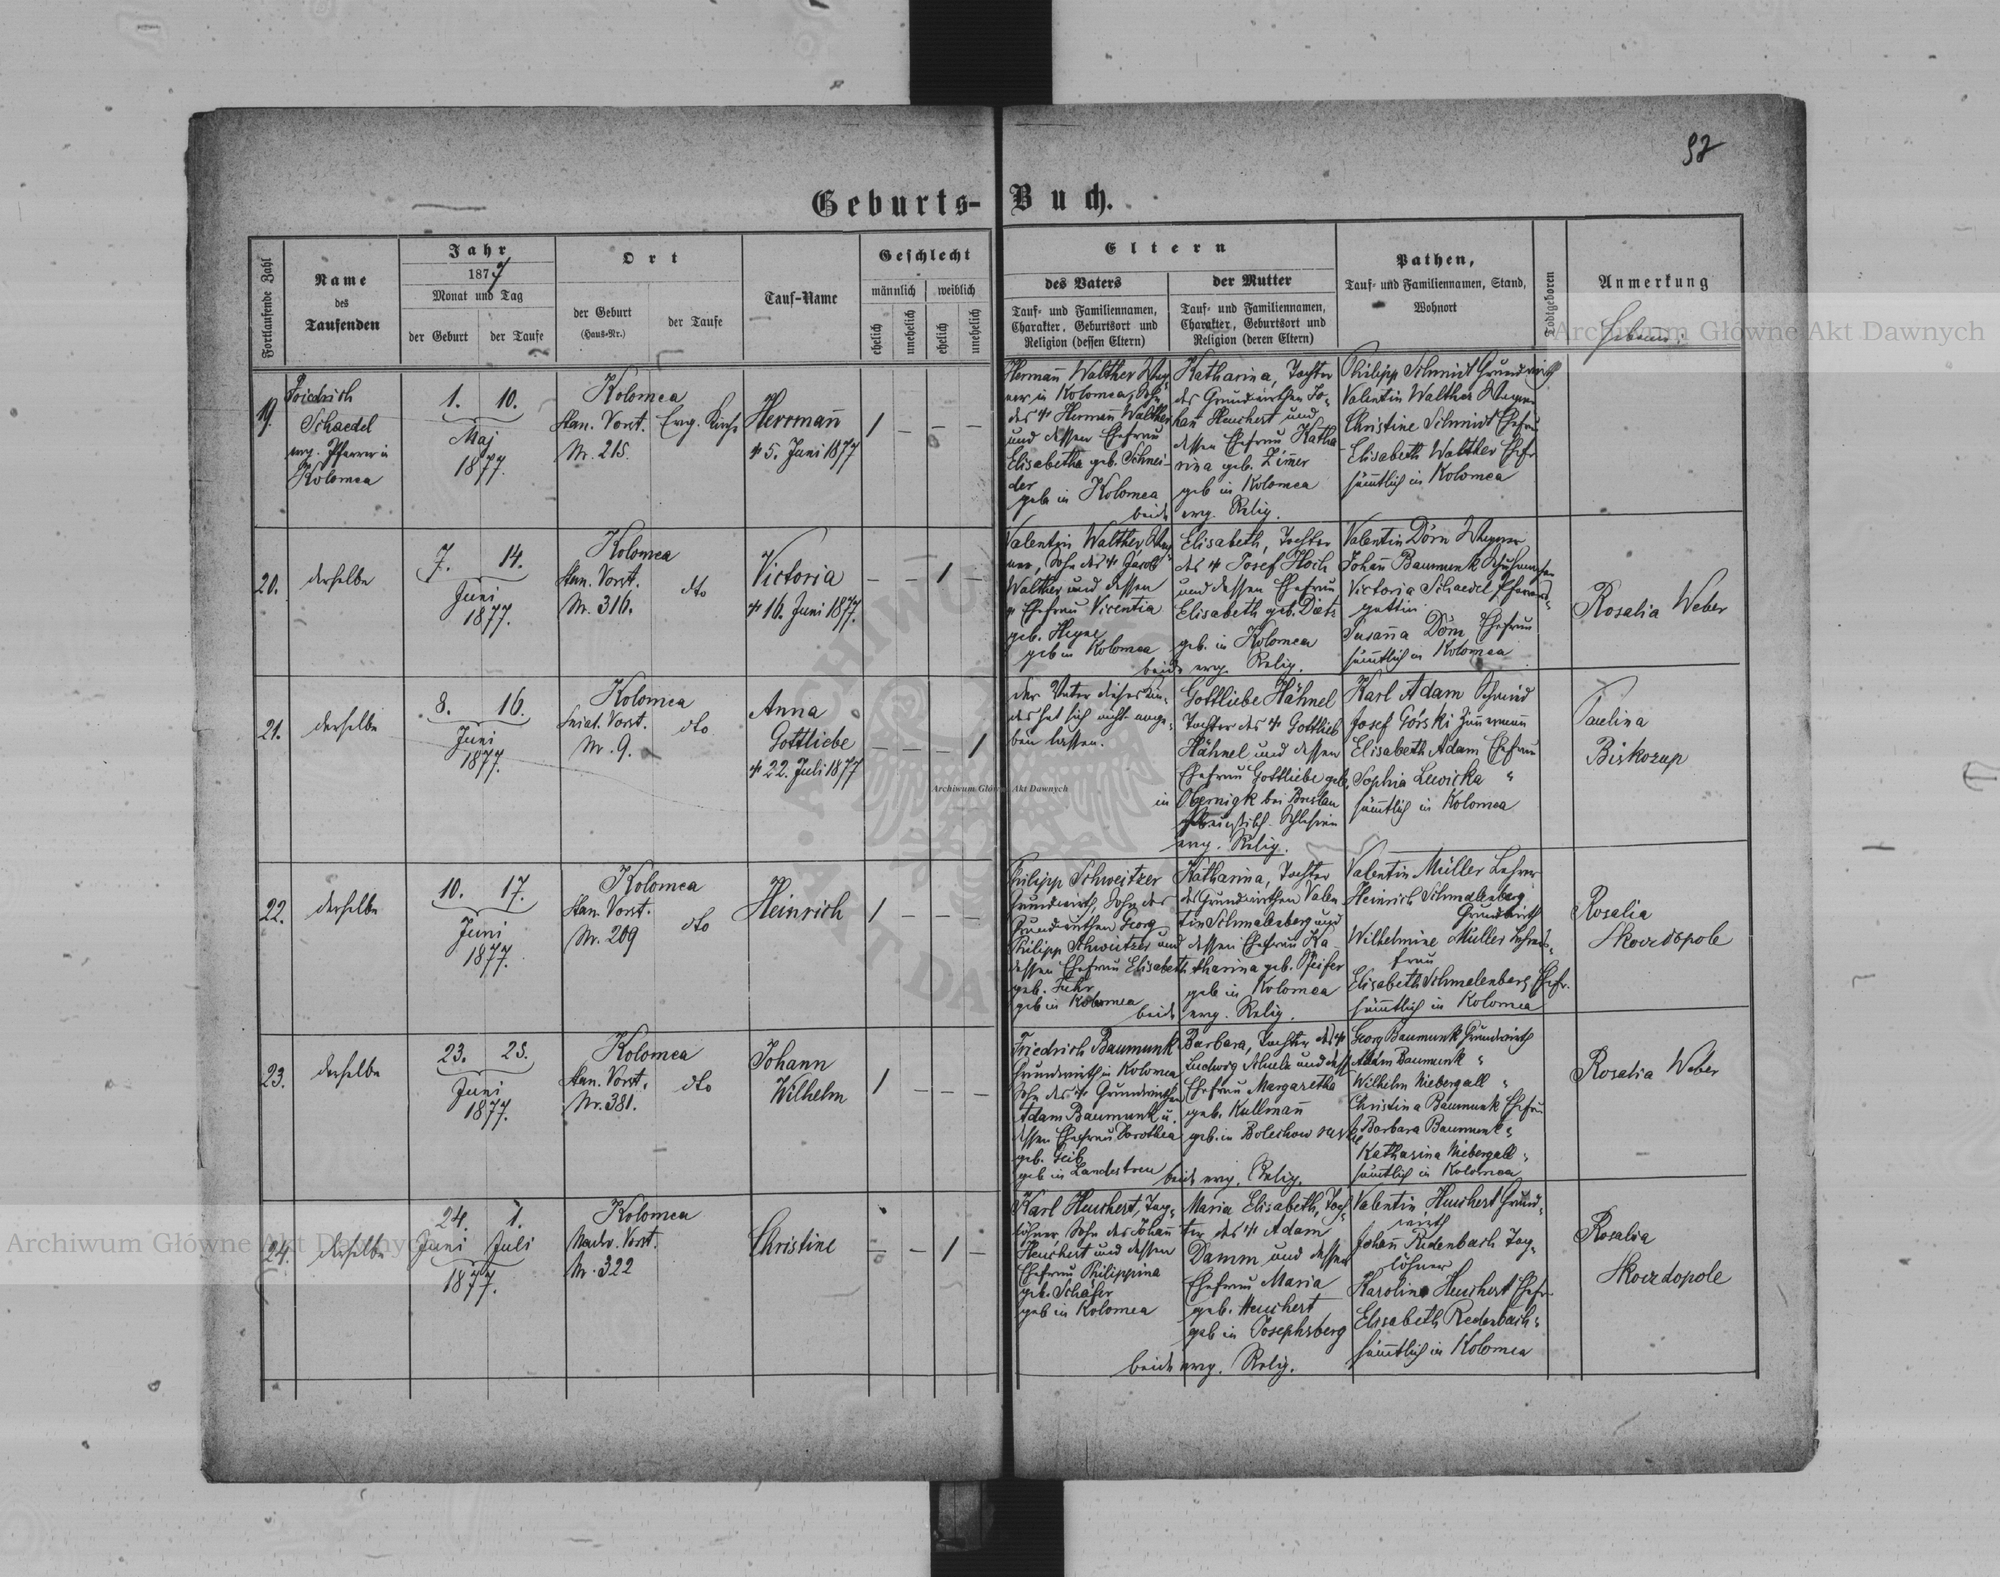 Geburts-Buch.
Fortlaufende Zahl
Name
des
Taufenden
Jahr
1877
Monat und Tag
der Geburt
der Taufe
Ort
der Geburt
(Haus-Nr.)
der Taufe
Tauf-Name
Geschlecht
männlich
weiblich
ehelich
unehelich
ehelich
unehelich
Eltern
des Vaters
Tauf- und Familiennamen,
Charakter, Geburtsort und
Religion (dessen Eltern)
der Mutter
Tauf- und Familiennamen,
Charakter, Geburtsort und
Religion (deren Eltern)
Pathen,
Tauf- und Familiennamen, Stand,
Wohnort
Todtgeboren
Anmerkung
19.
Friedrich
Schaedel
evg. Pfarrer in
Kolomea
1. 10.
Maj
1877.
Kolomea
Stan. Vorst.
Nr. 215.
Evg. Kirche
Herrmann
5. Juni 1877
1 – – –
Hermann Walther Wag-
ner in Kolomea, Sohn
des Hermann Walther
und dessen Ehefrau
Elisabetha geb. Schnei-
der
geb in Kolomea
Katharina, Tochter
des Grundwirthen Jo-
hann Heuchert und
dessen Ehefrau Katha-
rina geb. Zimer
geb in Kolomea
beide evg. Relig.
Philipp Schmidt Grundwirth
Valentin Walther Wagner
Christine Schmidt Ehefrau
Elisabeth Walther Ehefr
sämtlich in Kolomea
20.
derselbe
7. 14.
Juni
1877.
Kolomea
Stan. Vorst.
Nr. 316.
dto
Victoria
16. Juni 1877.
– – 1 –
Valentin Walther, Wag-
ner, Sohn des Jacob
Walther und dessen
Ehefrau Vicentia
geb. Heyne
geb in Kolomea
Elisabeth, Tochter
des Josef Hoch
und dessen Ehefrau
Elisabeth geb. Dietz
geb. in Kolomea
beide evg. Relig.
Valentin Dörn Wagner
Johann Baumunk
Victoria Schaedel Pfarrers-
gattin
Susanna Dörn Ehefrau
sämtlich in Kolomea
Rosalia Weber
21.
derselbe
8. 16.
Juni
1877.
Kolomea
Sniat. Vorst.
Nr. 9.
dto
Anna
Gottliebe
22. Juli 1877
– – – 1
der Vater dieses Kin-
des hat sich nicht ange-
ben lassen.
Gottliebe Hähnel
Tochter des Gottlieb
Hähnel und dessen
Ehefrau Gottliebe geb.
in Obernigk bei Breslau
Schlesien
evg. Relig.
Karl Adam Schmid
Josef Górski Zimermann
Elisabeth Adam Ehefrau
Sophia Lewicka "
sämtlich in Kolomea
Paulina
Biskozup
22.
derselbe
10. 17.
Juni
1877.
Kolomea
Stan. Vorst.
Nr. 209
dto
Heinrich
1 – – –
Philipp Schweitzer
Grundwirth, Sohn des
Grundwirthen Georg
Philipp Schweitzer und
dessen Ehefrau Elisabeth
geb. Fuhr
geb in Kolomea
Katharina, Tochter
des Grundwirthen Valen
tin Schmalenberg und
dessen Ehefrau Ka-
tharina geb. Pfeifer
geb in Kolomea
beide evg. Relig.
Valentin Müller Lehrer
Heinrich Schmalenberg
Grundwirth
Wilhelmine Müller Lehrers-
frau
Elisabeth Schmalenberg Ehefr.
sämtlich in Kolomea
Rosalia
Skovzdopole
23.
derselbe
23. 25.
Juni
1877.
Kolomea
Stan. Vorst.
Nr. 381.
dto
Johann
Wilhelm
1 – – –
Friedrich Baumunk
Grundwirth in Kolomea
Sohn des Grundwirthen
Adam Baumunk u.
dessen Ehefrau Dorothea
geb. Geib
geb in Landestreu
Barbara, Tochter des
Ludwig
Ehefrau Margaretha
geb. Kullmann
geb. in Bolechow
beide evg. Relig.
Georg Baumunk Grundwirth
Adam Baumunk "
Wilhelm Niebergall "
Christina Baumunk Ehefrau
Barbara Baumunk "
Katharina Niebergall "
sämtlich in Kolomea
Rosalia Weber
24.
derselbe
24. 1.
Juni Juli
1877.
Kolomea
Nadv. Vorst.
Nr. 322
Christine
– – 1 –
Karl Heuchert, Tag-
löhner, Sohn des Johann
Heuchert und dessen
Ehefrau Philippina
geb. Schäfer
geb in Kolomea
Maria Elisabeth, Toch-
ter des Adam
Damm und dessen
Ehefrau Maria
geb. Heuchert
geb in Josephsberg
beide evg. Relig.
Valentin Heuchert Grund-
wirth
Johann Redenbach Tag-
löhner
Karoline Heuchert Ehefr.
Elisabeth Redenbach "
sämtlich in Kolomea
Rosalia
Skovzdopole
Archiwum Główne Akt Dawnych
Archiwum Główne Akt Dawnych
Archiwum Główne Akt Dawnych